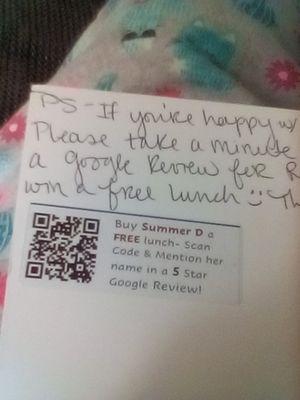 PS - If you're happy w/
Please take a minute
a google Review for R
win a free lunch :) Th
Buy Summer D a
FREE lunch- Scan
Code & Mention her
name in a 5 Star
Google Review!